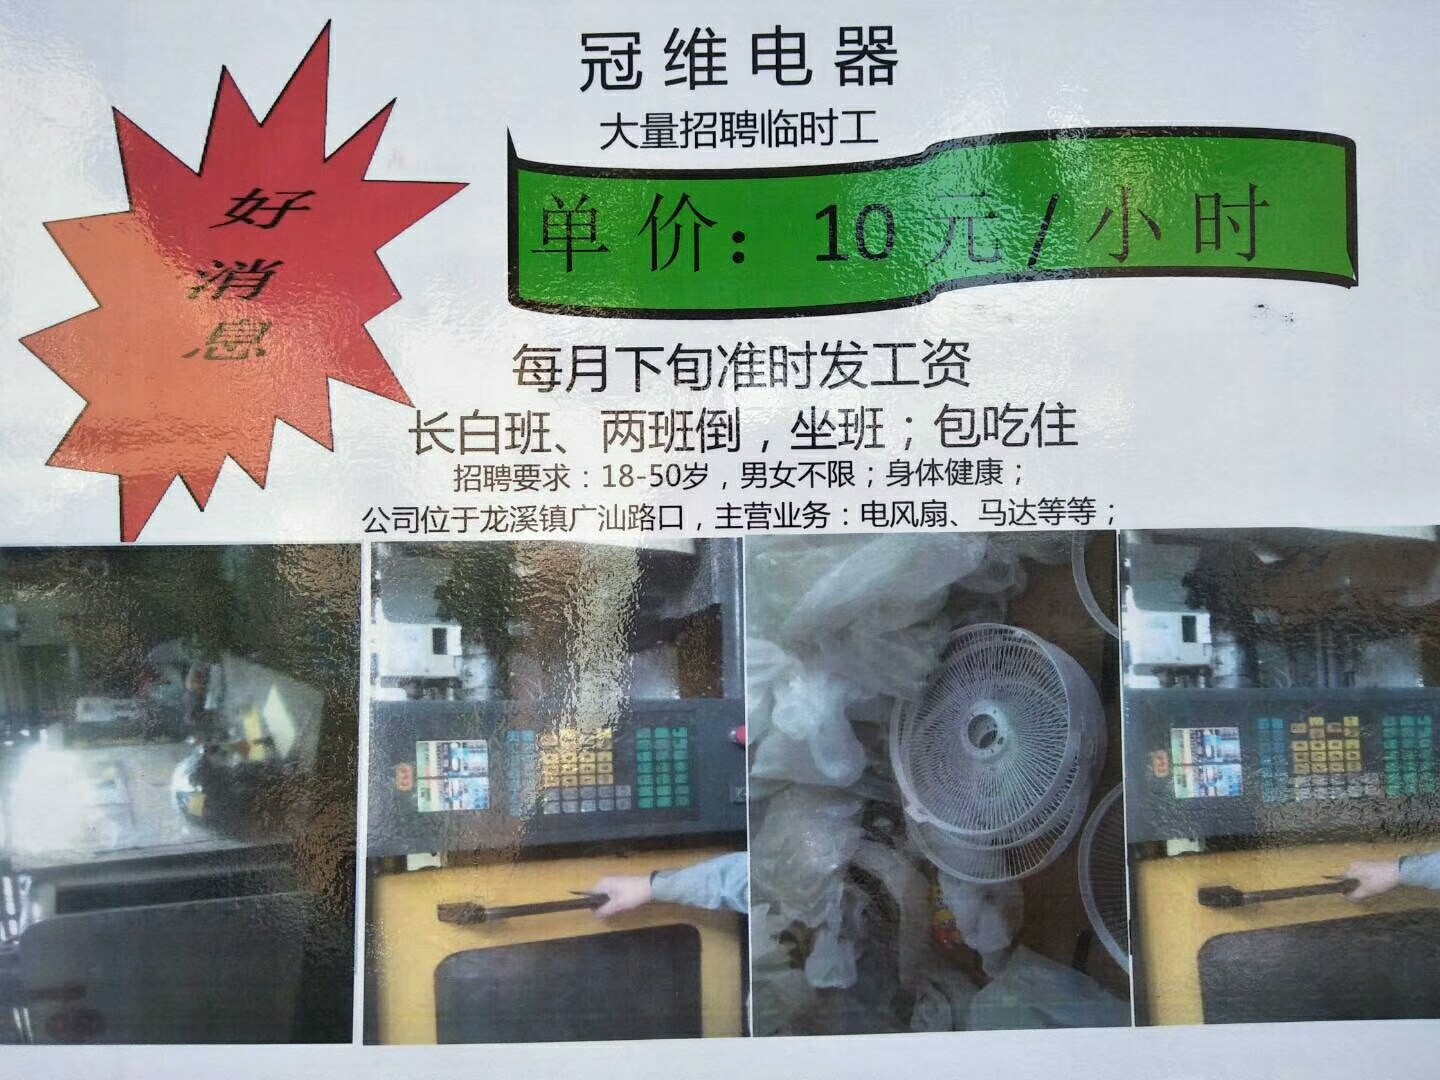 冠维电器
大量招聘临时工
好
消
息
单价：10元/小时
每月下旬准时发工资
长白班、两班倒，坐班；包吃住
招聘要求：18-50岁，男女不限；身体健康；
公司位于龙溪镇广汕路口，主营业务：电风扇、马达等等；